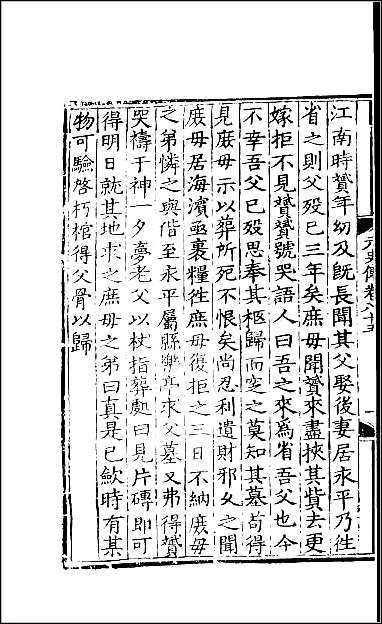 江南時贇年幼及旣長聞其父娶後妻居永平乃徃
省之則父殁已三年矣庶毋聞贇來盡挾其貲去更
嫁拒不見贇贇號哭語人曰吾之來爲省吾父也今
不幸吾父已殁思奉其柩歸而窆之莫知其墓苟得
見庶毋示以葬所死不恨矣尚忍利遺財邪久之聞
庶毋居海濱亟裹糧徃庶毋復拒之三日不納庶毋
之弟憐之與偕至永平屬縣樂亭求父墓又弗得贇
哭禱于神一夕夢老父以杖指葬處曰見片磚即可
得明日就其地求之庶毋之弟曰真是已歛時有某
物可驗啓朽棺得父骨以歸
元史傳卷八十五